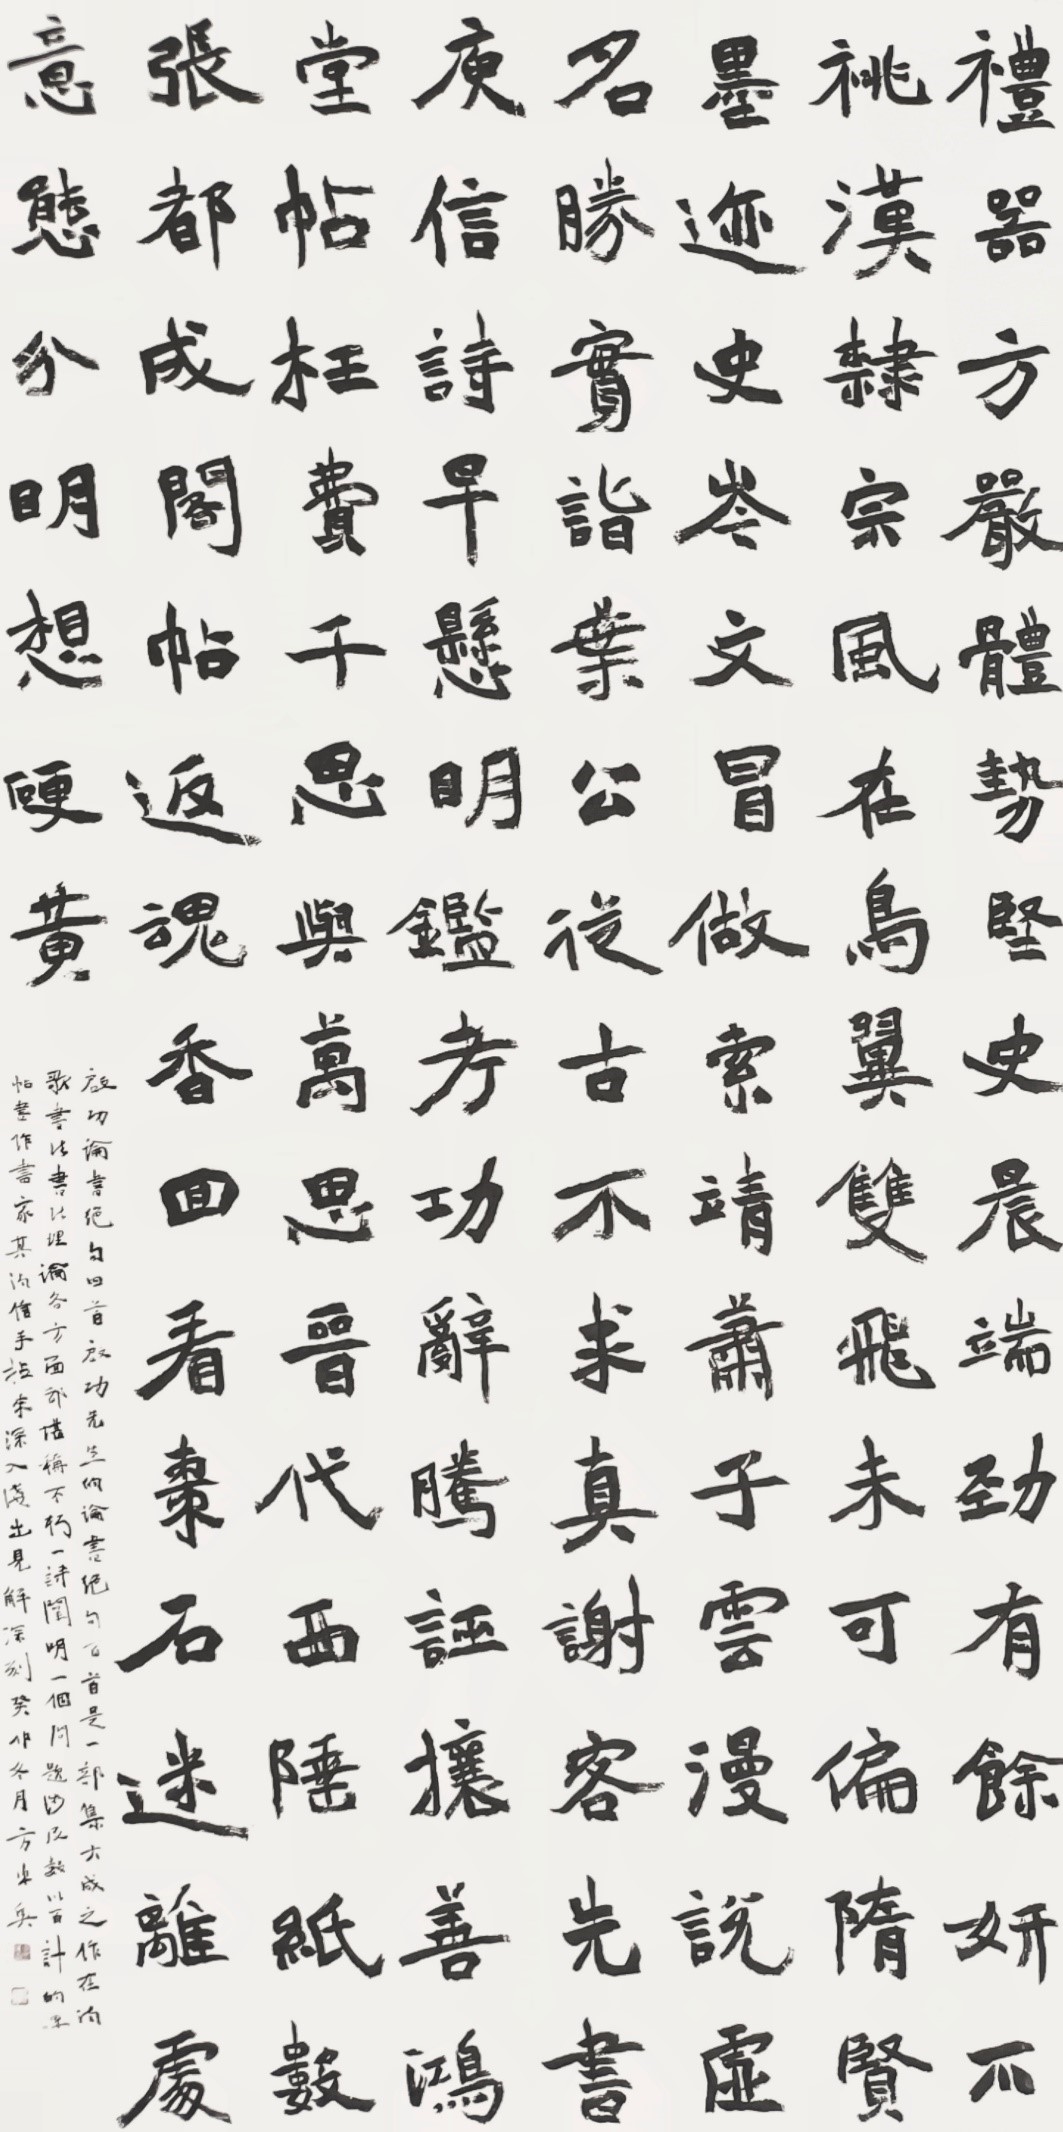 禮器方嚴體勢堅史晨端勁有餘妍不
祧漢隸宗風在鳥翼雙飛未可偏隋賢
墨迹史岑文冒做索靖蕭子雲漫說虛
名勝實詣葉公從古不求真謝客先書
庾信詩早懸明鑑考功辭騰誣攘善鴻
堂帖枉費千思與萬思晉代西陲紙數
張都成閣帖返魂香回看棗石迷離處
意態分明想硬黃
啟功論書絕句四首啟功先生的論書絕句百首是一部集大成之作在詩
歌書法書法理論各方面都堪稱不朽一詩闡明一個問題涉及數以百計的碑
帖書作書家其詩信手拈來深入淺出見解深刻癸卯冬月方